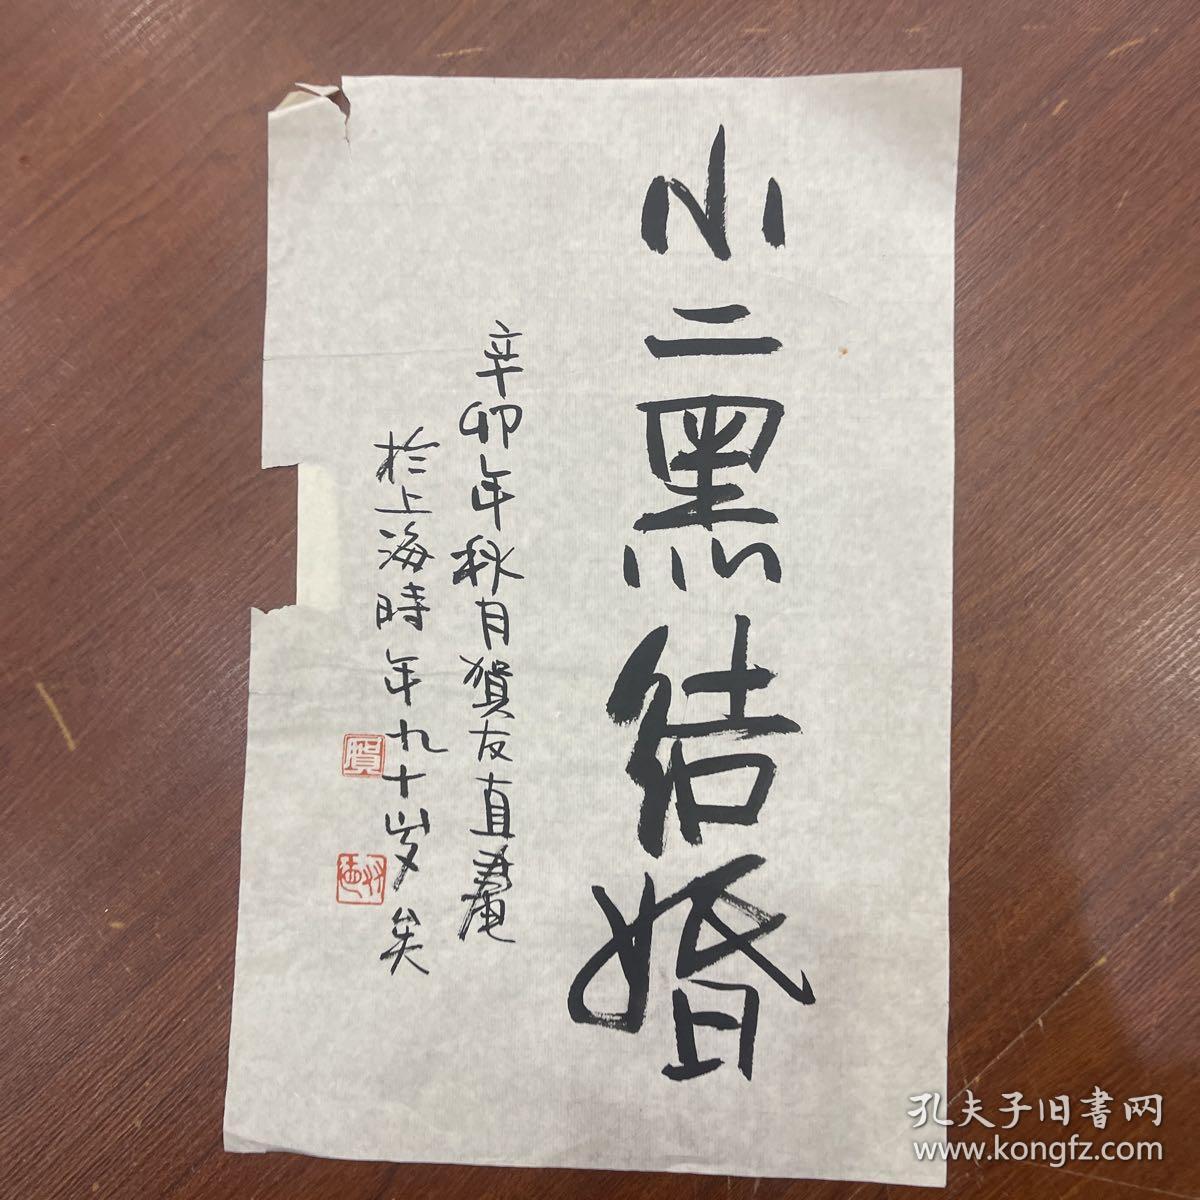 小二黑结婚
辛卯年秋月賀友直書
於上海時年九十岁矣
賀
孔夫子旧書网
www.kongfz.com